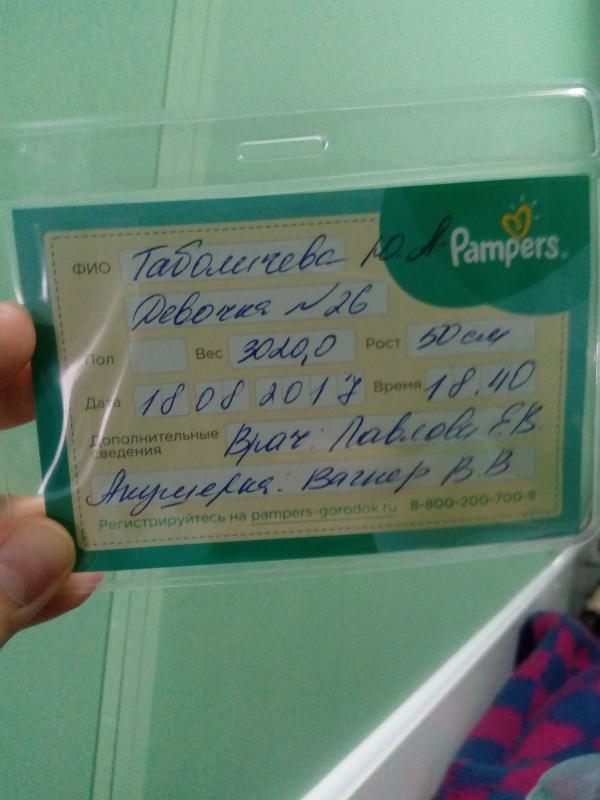 Pampers
ФИО Таболичева Ю.А
Девочка №26
Пол Вес 3020,0 Рост 50 см
Дата 18 08 2017 Время 18.40
Дополнительные сведения Врач: Павлова Е.В.
Акушерка: Вагнер В.В
Регистрируйтесь на pampers-gorodok.ru 8-800-200-700-8